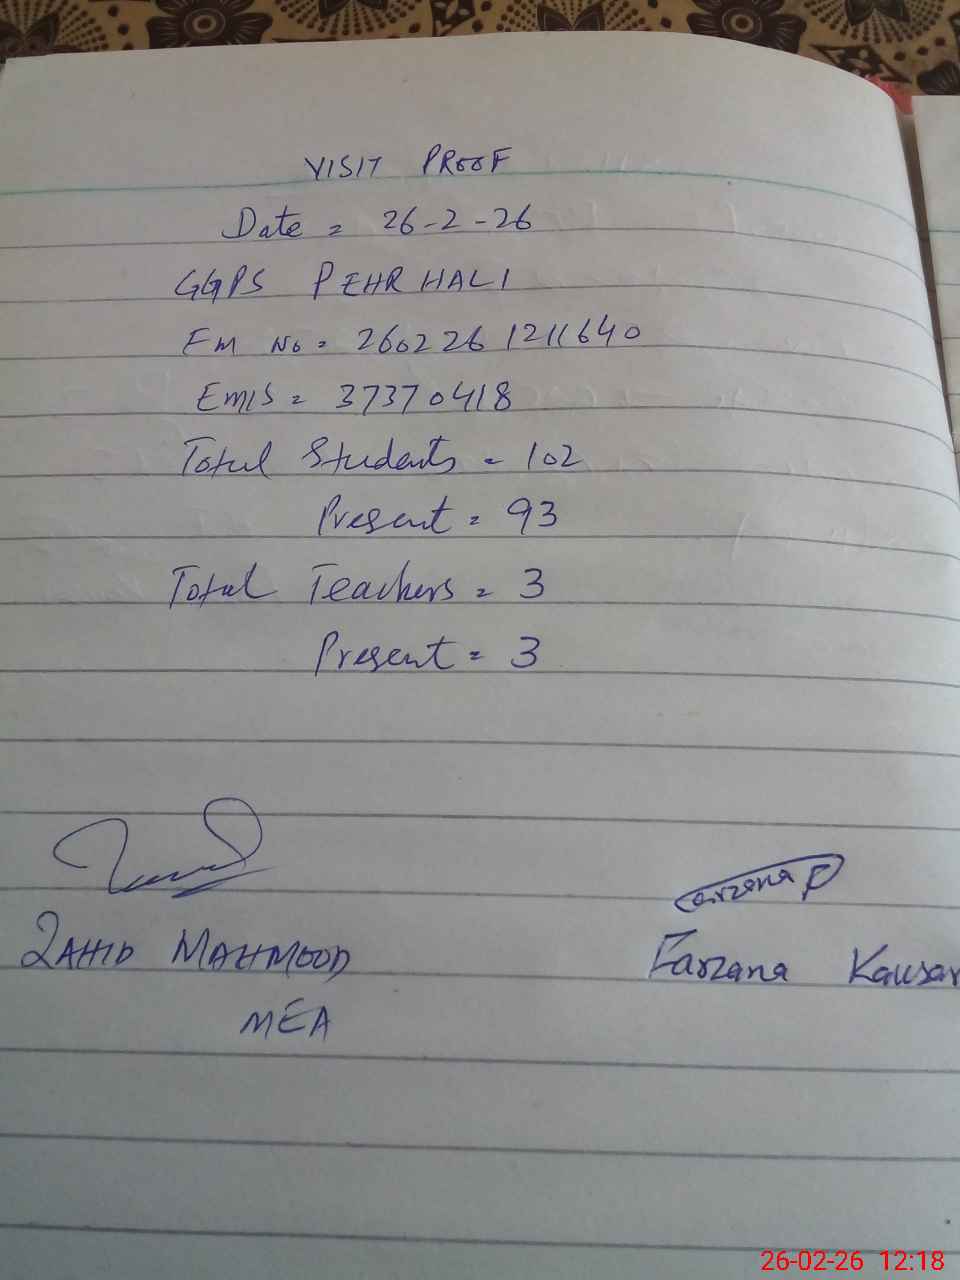 VISIT PROOF
Date = 26-2-26
GGPS PEHR HALI
Em No = 2602261211640
Emis = 37370418
Total Students = 102
Present = 93
Total Teachers = 3
Present = 3
Farzana
ZAHID MAHMOOD
Farzana Kausar
MEA
26-02-26 12:18